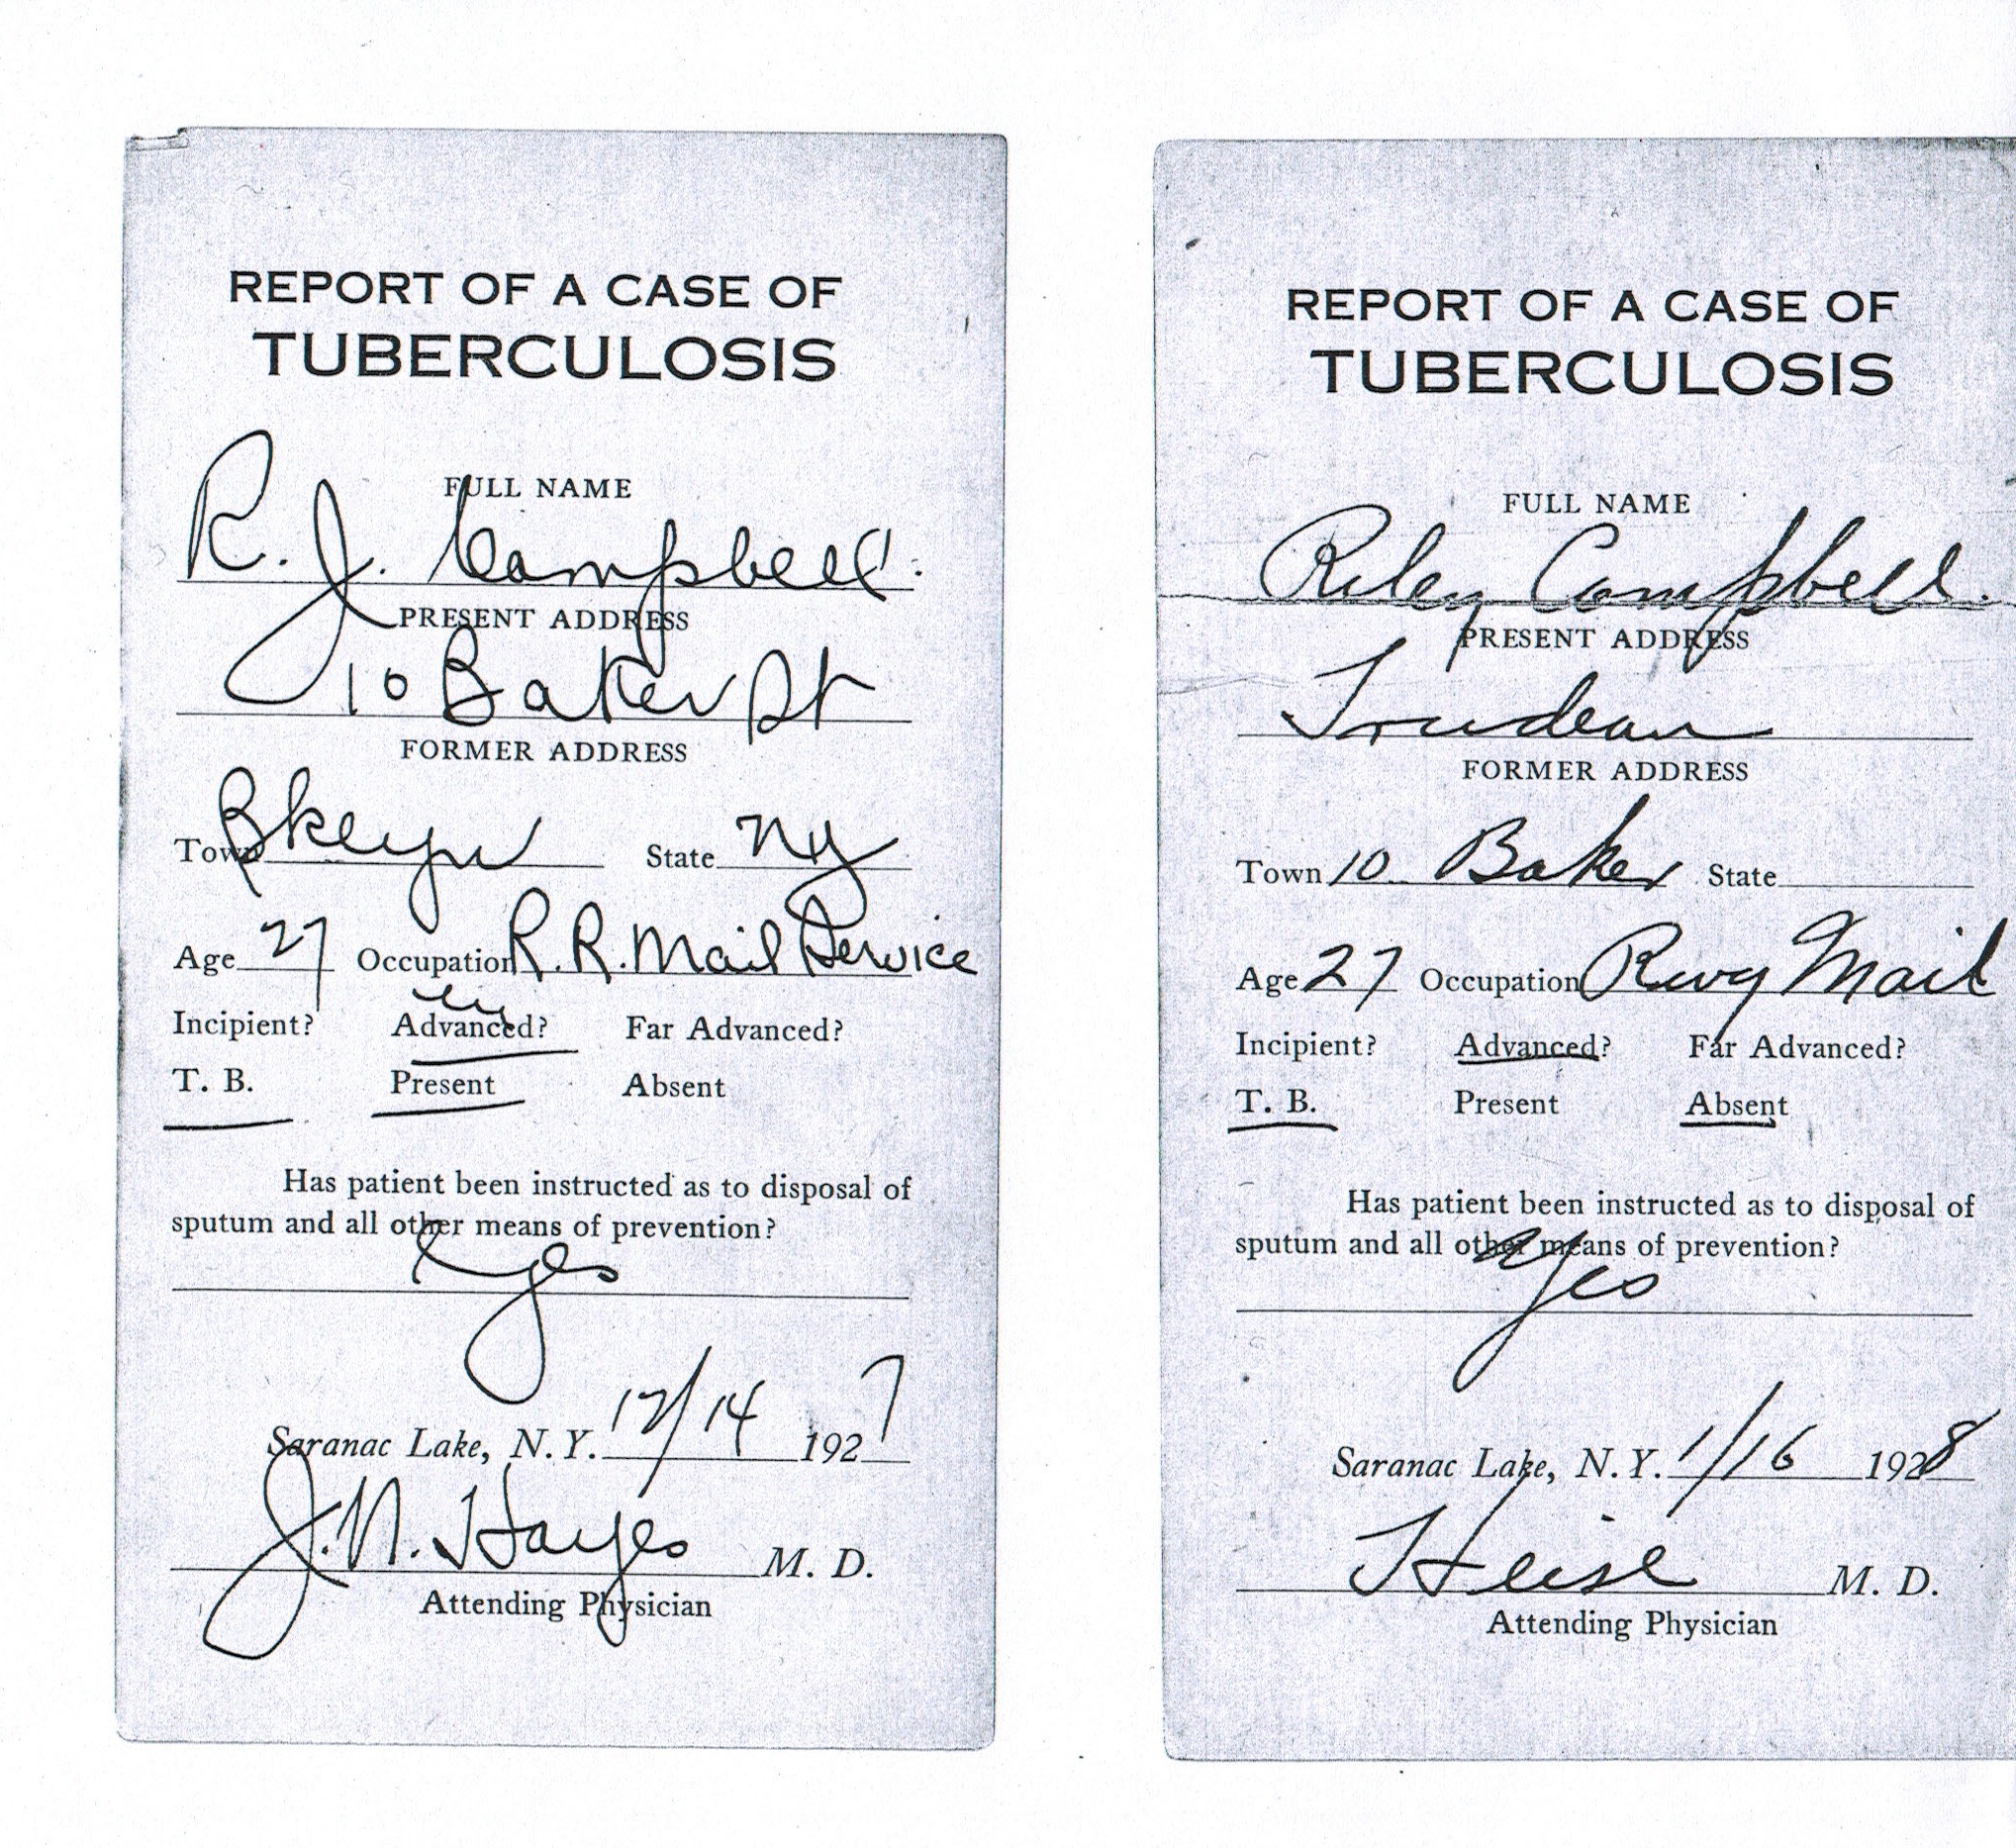 REPORT OF A CASE OF
TUBERCULOSIS
FULL NAME
R. J. Campbell.
PRESENT ADDRESS
10 Baker St
FORMER ADDRESS
Town Bklyn State NY
Age 27 Occupation R. R. Mail Service
Incipient? Advanced? Far Advanced?
T. B. Present Absent
Has patient been instructed as to disposal of
sputum and all other means of prevention?
Yes
Saranac Lake, N. Y. 12/14 1927
J. N. Hayes M. D.
Attending Physician
REPORT OF A CASE OF
TUBERCULOSIS
FULL NAME
Riley Campbell.
PRESENT ADDRESS
Trudeau
FORMER ADDRESS
Town 10 Baker State
Age 27 Occupation Rwy Mail
Incipient? Advanced? Far Advanced?
T. B. Present Absent
Has patient been instructed as to disposal of
sputum and all other means of prevention?
Yes
Saranac Lake, N. Y. 1/16 1928
Heise M. D.
Attending Physician